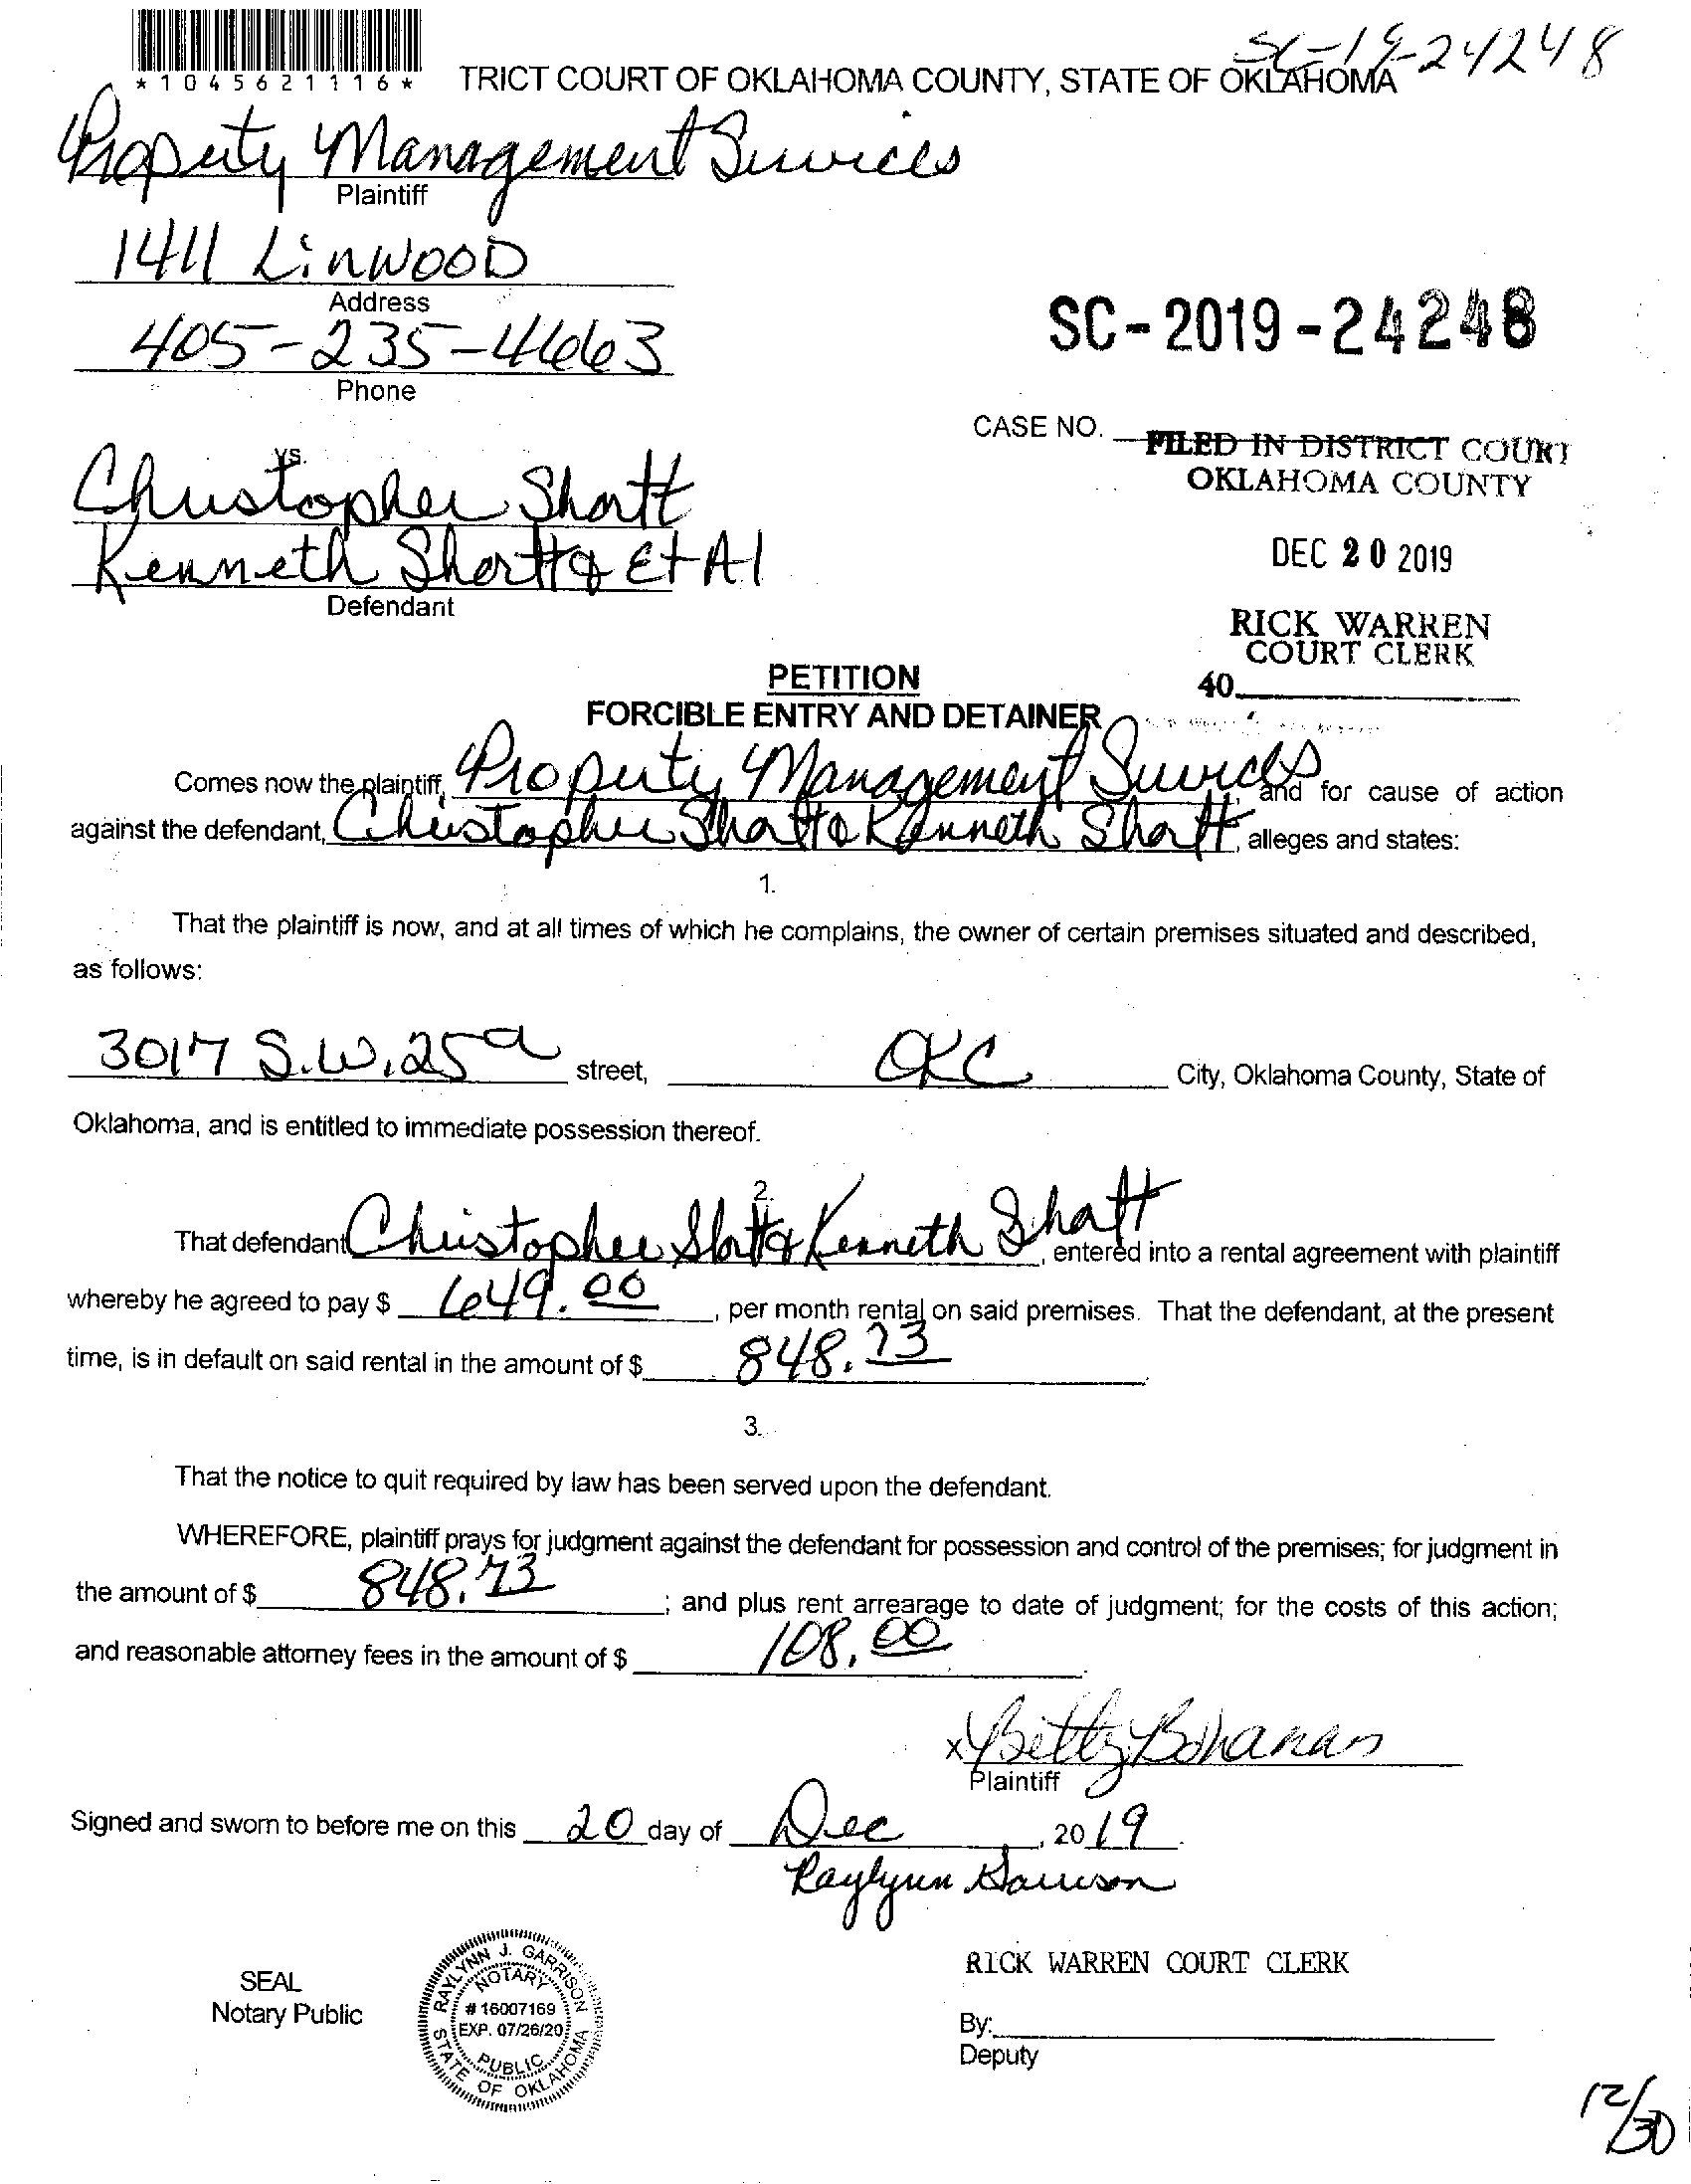 SC-19-24248
*1045621116*
TRICT COURT OF OKLAHOMA COUNTY, STATE OF OKLAHOMA
Property Management Services
Plaintiff
1411 LinWOOD
Address
405-235-4663
Phone
SC-2019-24248
CASE NO.
FILED IN DISTRICT COURT
OKLAHOMA COUNTY
vs.
Christopher Shortt
Kenneth Shortt & Et Al
Defendant
DEC 20 2019
RICK WARREN
COURT CLERK
40
PETITION
FORCIBLE ENTRY AND DETAINER
Comes now the plaintiff, Property Management Services, and for cause of action
against the defendant, Christopher Shortt & Kenneth Shortt, alleges and states:
1.
That the plaintiff is now, and at all times of which he complains, the owner of certain premises situated and described,
as follows:
3017 S.W. 25 street, OKC City, Oklahoma County, State of
Oklahoma, and is entitled to immediate possession thereof.
2.
That defendant Christopher Shortt & Kenneth Shortt, entered into a rental agreement with plaintiff
whereby he agreed to pay $ 649.00, per month rental on said premises. That the defendant, at the present
time, is in default on said rental in the amount of $ 848.73
3.
That the notice to quit required by law has been served upon the defendant.
WHEREFORE, plaintiff prays for judgment against the defendant for possession and control of the premises; for judgment in
the amount of $ 848.73; and plus rent arrearage to date of judgment; for the costs of this action;
and reasonable attorney fees in the amount of $ 108.00.
x Betty Bohanan
Plaintiff
Signed and sworn to before me on this 20 day of Dec, 2019.
Raylynn Garrison
SEAL
Notary Public
RAYLYNN J. GARRISON
NOTARY
# 16007169
EXP. 07/26/20
PUBLIC
STATE OF OKLAHOMA
RICK WARREN COURT CLERK
By:
Deputy
12/30